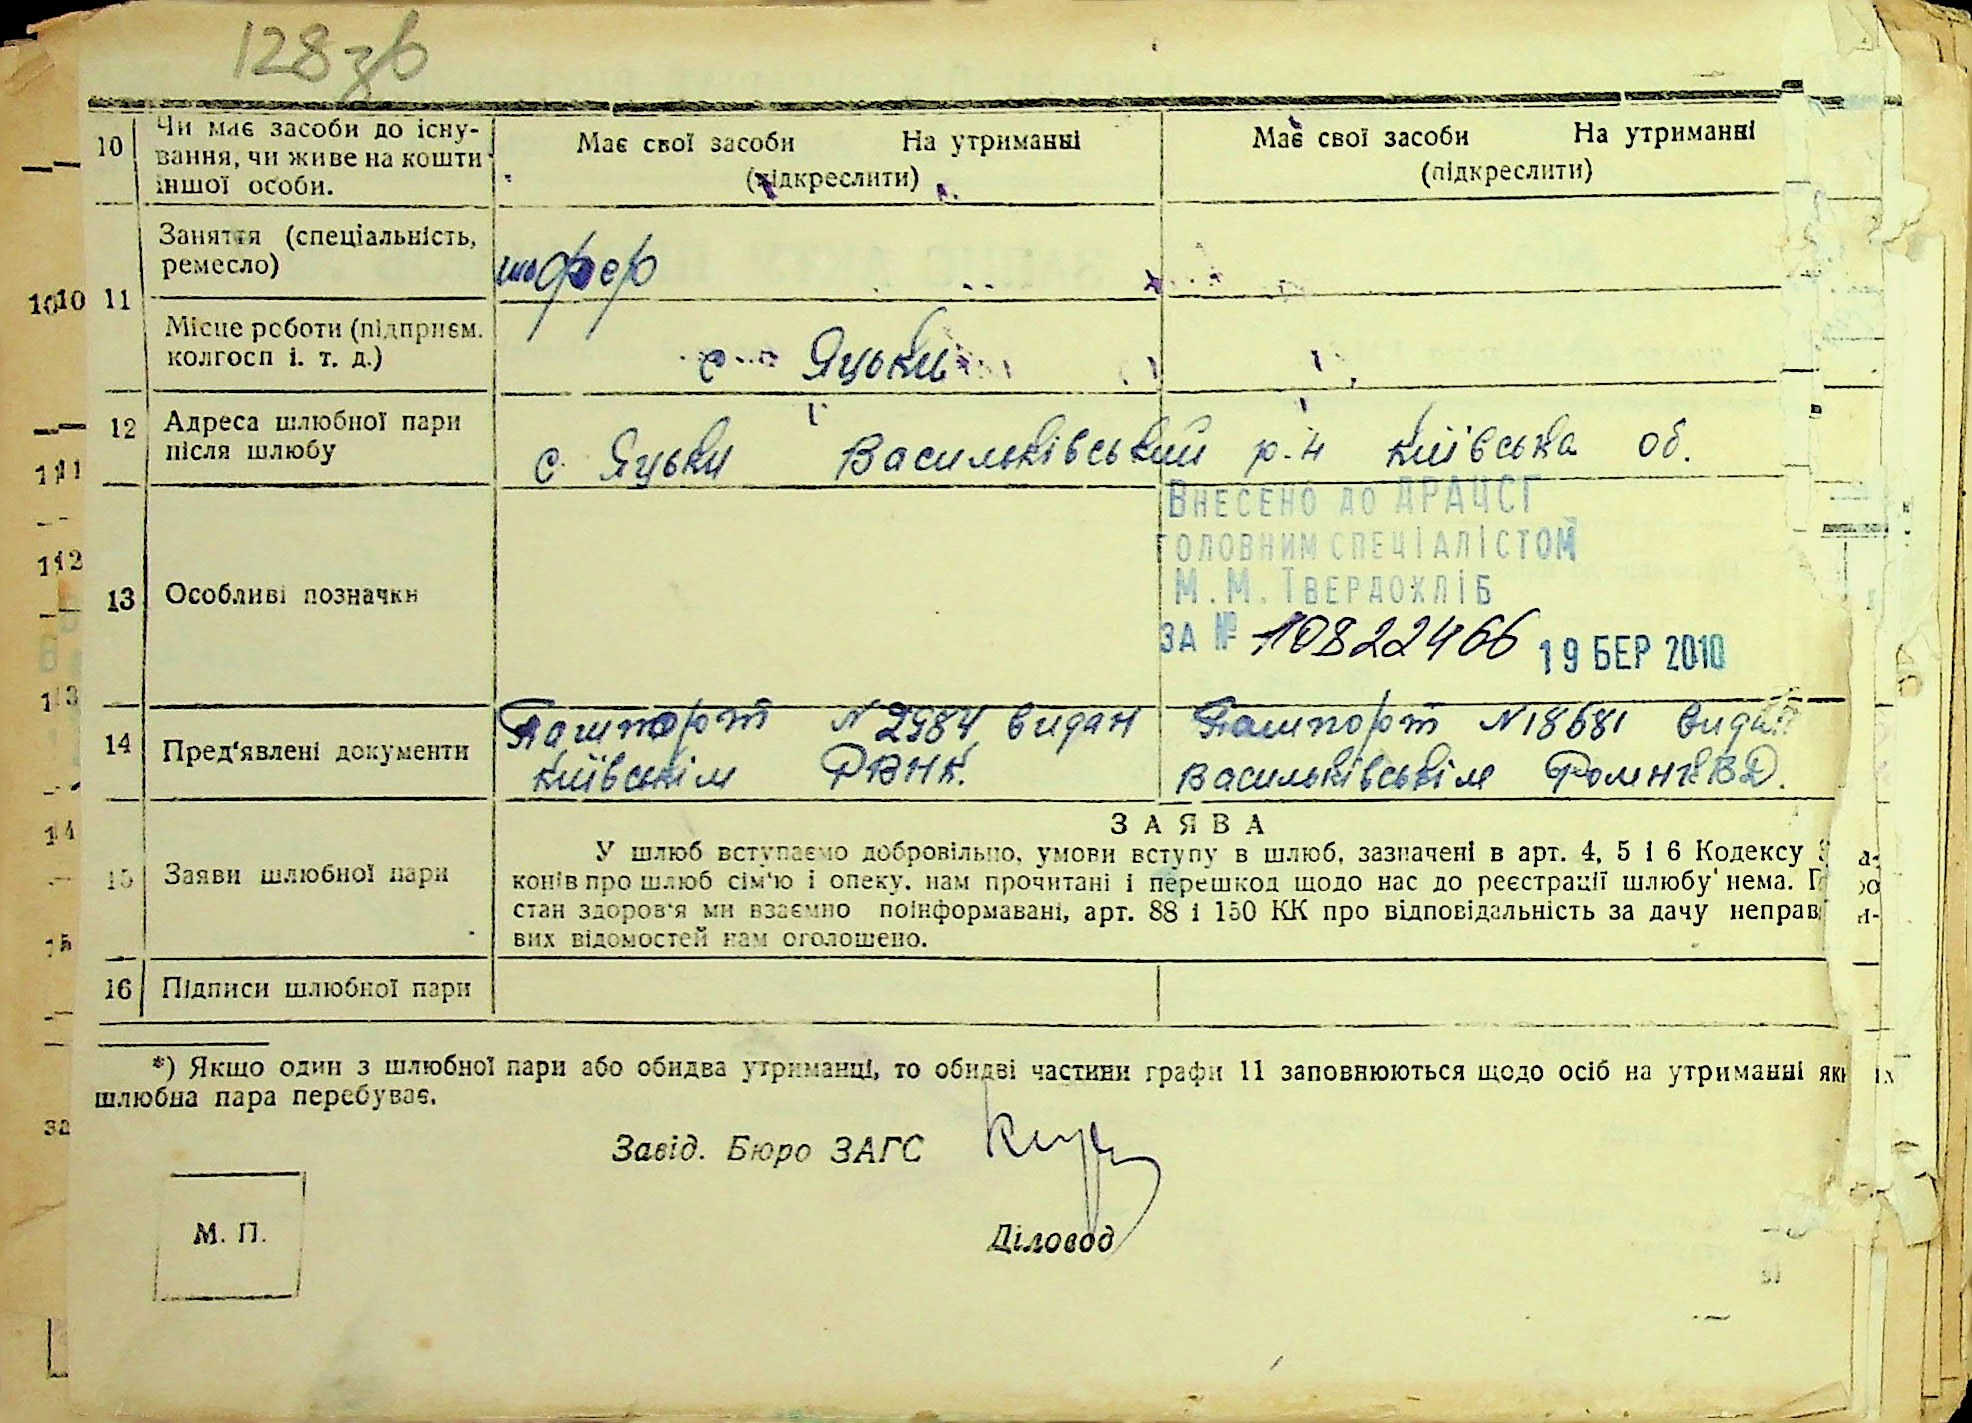 128 зв
10 Чи має засоби до існу-
вання, чи живе на кошти
іншої особи.
Має свої засоби На утриманні
(підкреслити)
Має свої засоби На утриманні
(підкреслити)
11 Заняття (спеціальність,
ремесло)
шофер
Місце роботи (підприєм.
колгосп і. т. д.)
с Яцьки
12 Адреса шлюбної пари
після шлюбу
с. Яцьки Васильківський р-н Київська об.
13 Особливі позначки
Внесено до ДРАЦСГ
головним спеціалістом
М.М. Твердохліб
за № 10822466 19 БЕР 2010
14 Пред'явлені документи
Пашпорт N 2984 видан
Київськім РВНК.
Пашпорт N 18681 видан
Васильківськім
15 Заяви шлюбної пари
ЗАЯВА
У шлюб вступаємо добровільно, умови вступу в шлюб, зазначені в арт. 4, 5 і 6 Кодексу
конів про шлюб сім'ю і опеку. нам прочитані і перешкод щодо нас до реєстрації шлюбу нема.
стан здоров'я ми взаємно поінформавані, арт. 88 і 150 КК про відповідальність за дачу неправ
вих відомостей нам оголошено.
16 Підписи шлюбної пари
*) Якщо один з шлюбної пари або обидва утриманці, то обидві частини графи 11 заповнюються щодо осіб на утриманні
шлюбна пара перебуває.
Завід. Бюро ЗАГС
М. П.
Діловод